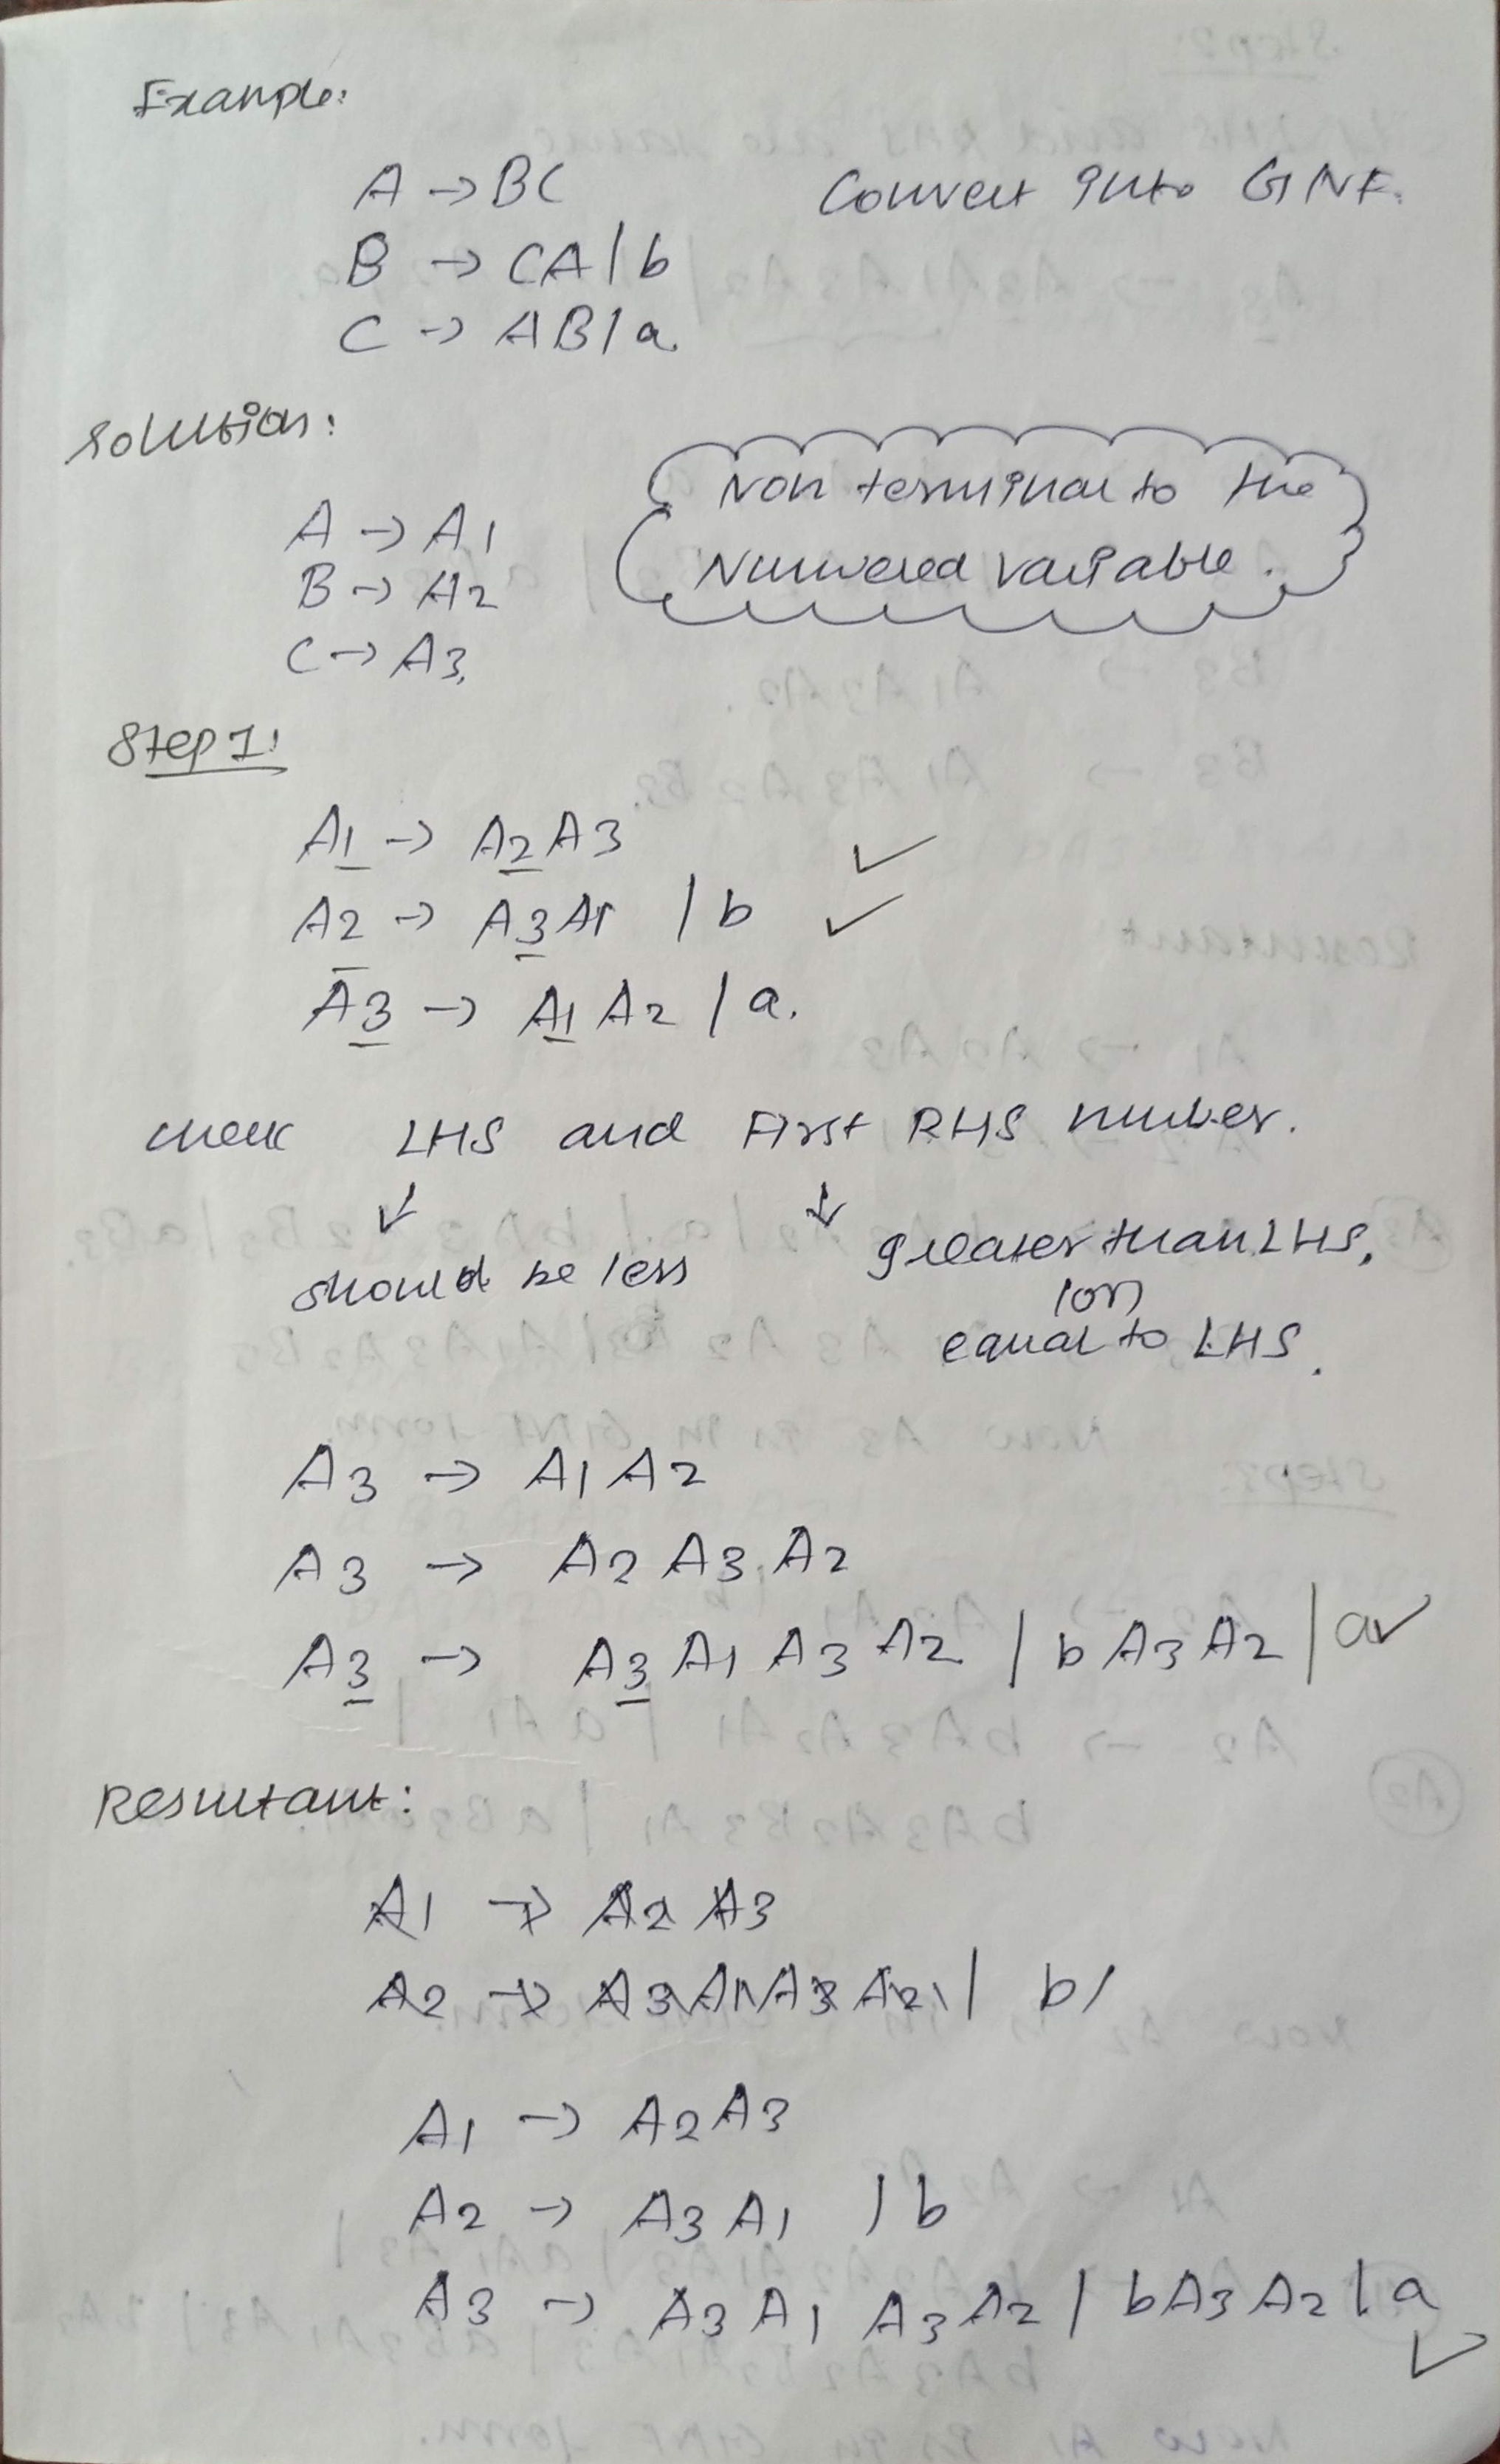 Example:
A → BC Convert into GNF.
B → CA | b
C → AB | a
Solution:
A → A1
B → A2
C → A3
Non terminal to the
Numbered variable.
Step 1:
A1 → A2 A3
A2 → A3 A1 | b
A3 → A1 A2 | a.
Check LHS and First RHS number.
should be less greater than LHS,
(or)
equal to LHS.
A3 → A1 A2
A3 → A2 A3 A2
A3 → A3 A1 A3 A2 | b A3 A2 | a
Resultant:
A1 → A2 A3
A2 → A3 A1 A3 A2 | b |
A1 → A2 A3
A2 → A3 A1 | b
A3 → A3 A1 A3 A2 | b A3 A2 | a